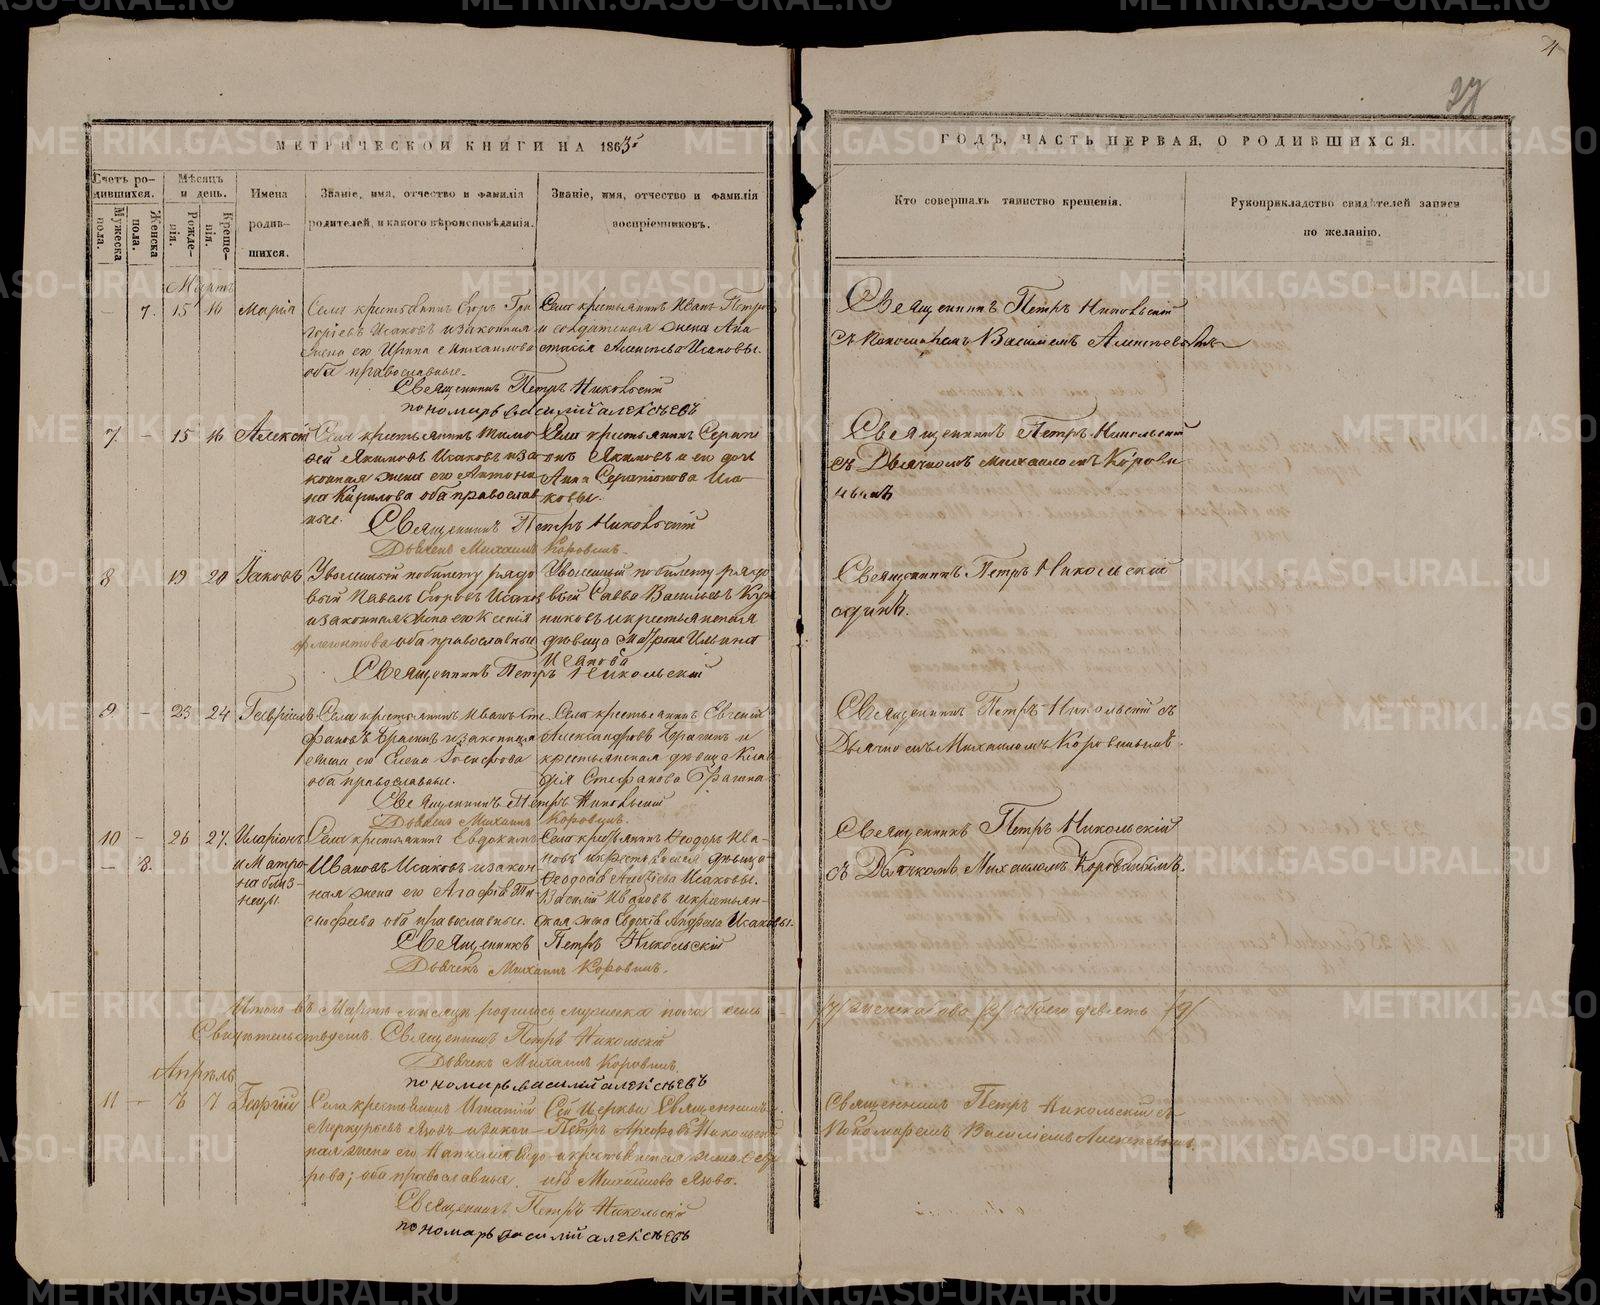 МЕТРИЧЕСКОЙ КНИГИ НА 1863й
ГОДЪ, ЧАСТЬ ПЕРВАЯ, О РОДИВШИХСЯ.
Счетъ родившихся.
Мужеска пола.
Женска пола.
Мѣсяцъ и день.
Рожденія.
Крещенія.
Имена родившихся.
Званіе, имя, отчество и фамилія
родителей, и какого вѣроисповѣданія.
Званіе, имя, отчество и фамилія
воспріемниковъ.
Кто совершалъ таинство крещенія.
Рукоприкладство свидѣтелей записи
по желанію.
Мартъ
7. 15 16 Марія
Села крестьянинъ Егоръ Гри
горіевъ Исаковъ и законная
жена его Ирина Михаилова
оба православные.
Села крестьянинъ Иванъ Петровъ
и солдатская жена Ана
стасія Алексѣева Исаковы.
Священникъ Петръ Никольскій
пономарь василий алексѣевъ
Священникъ Петръ Никольскій
съ Пономаремъ Василіемъ Алексѣевымъ
7 - 15 16 Алексій
Села крестьянинъ Тимо
фей Якимовъ Исаковъ и за
конная жена его Антони
на Кирилова оба православ
ные.
Села крестьянинъ Серапі
онъ Якимовъ и его дочь
Анна Серапіонова Иса
ковы.
Священникъ Петръ Никольскій
Дьячекъ Михаилъ Коровинъ.
Священникъ Петръ Никольскій
съ Дьячкомъ Михаиломъ Корови
нымъ
8 19 20 Іаковъ
Уволенный по билету рядо
вый Павелъ Егоровъ Исаковъ
и законная жена его Ксенія
оба православные
Уволенный по билету рядо
вый Савва Васильевъ
и крестьянская
дѣвица Марѳа Ильина
Исакова
Священникъ Петръ Никольскій
Священникъ Петръ Никольскій
одинъ.
9 - 23 24 Гавріилъ
Села крестьянинъ Иванъ Сте
фановъ Брагинъ и законная
жена его Елена Іосифова
оба православные.
Села крестьянинъ Евгеній
Александровъ Брагинъ и
крестьянская дѣвица Клав
дія Стефанова Брагина
Священникъ Петръ Никольскій
Дьячекъ Михаилъ Коровинъ.
Священникъ Петръ Никольскій съ
Дьячкомъ Михаиломъ Коровинымъ.
10 - 26 27. Иларіонъ
- 8. и Матро
на близ
нецы.
Села крестьянинъ Евдокимъ
Ивановъ Исаковъ и закон
ная жена его Агафія Ти
моѳеева оба православные.
Села крестьянинъ Ѳеодоръ Ива
новъ и крестьянская дѣвица
Ѳеодосія Исаковы.
Василій Ивановъ и крестьян-
ская жена Евдокія Андреева Исаковы.
Священникъ Петръ Никольскій
Дьячекъ Михаилъ Коровинъ.
Священникъ Петръ Никольскій
съ Дьячкомъ Михаиломъ Коровинымъ.
Итого въ Мартѣ мѣсяцѣ родилось мужеска пола семь
/7/ женскаго два /2/ обоего девять /9/
Свидѣтельствуемъ. Священникъ Петръ Никольскій
Дьячекъ Михаилъ Коровинъ.
пономарь василий алексѣевъ
Апрѣль
11 - 6 7 Георгій
Села крестьянинъ Игнатій
Меркурьевъ Язовъ и закон
ная жена его Наталія Ѳедо
рова; оба православные.
Сей Церкви Священникъ
Петръ Никольскій
и крестьянская жена
Михайлова Язова.
Священникъ Петръ Никольскій
пономарь василий алексѣевъ
Священникъ Петръ Никольскій съ
Пономаремъ Василіемъ Алексѣевымъ.